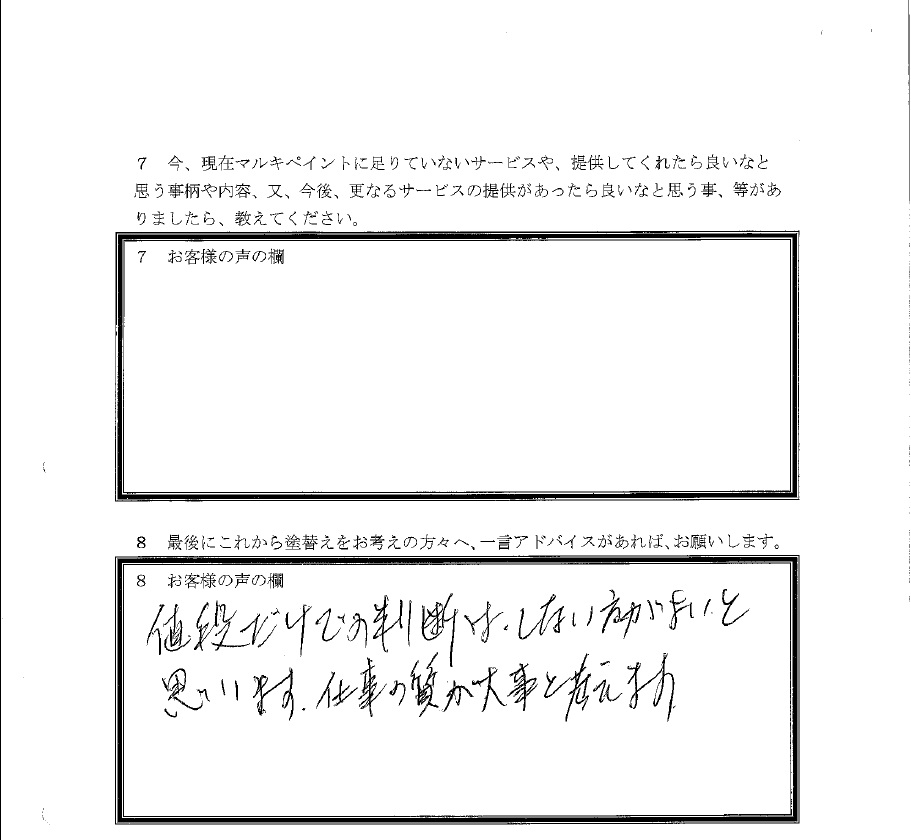 7 今、現在マルキペイントに足りていないサービスや、提供してくれたら良いなと
思う事柄や内容、又、今後、更なるサービスの提供があったら良いなと思う事、等があ
りましたら、教えてください。
7 お客様の声の欄
8 最後にこれから塗替えをお考えの方々へ、一言アドバイスがあれば、お願いします。
8 お客様の声の欄
値段だけでの判断は、しない方がよいと
思います。仕事の質が大事と考えます